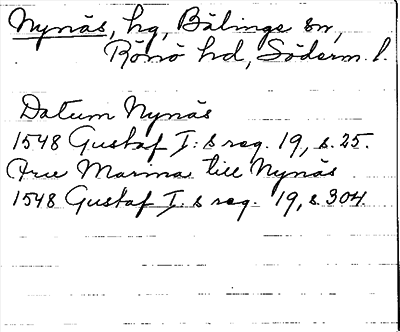 Nynäs, hg, Bälinge sn,
Rönö hd, Söderm. l.
Datum Nynäs
1548 Gustaf I:s reg. 19, s. 25.
Fru Marina till Nynäs
1548 Gustaf I:s reg. 19, s. 304.